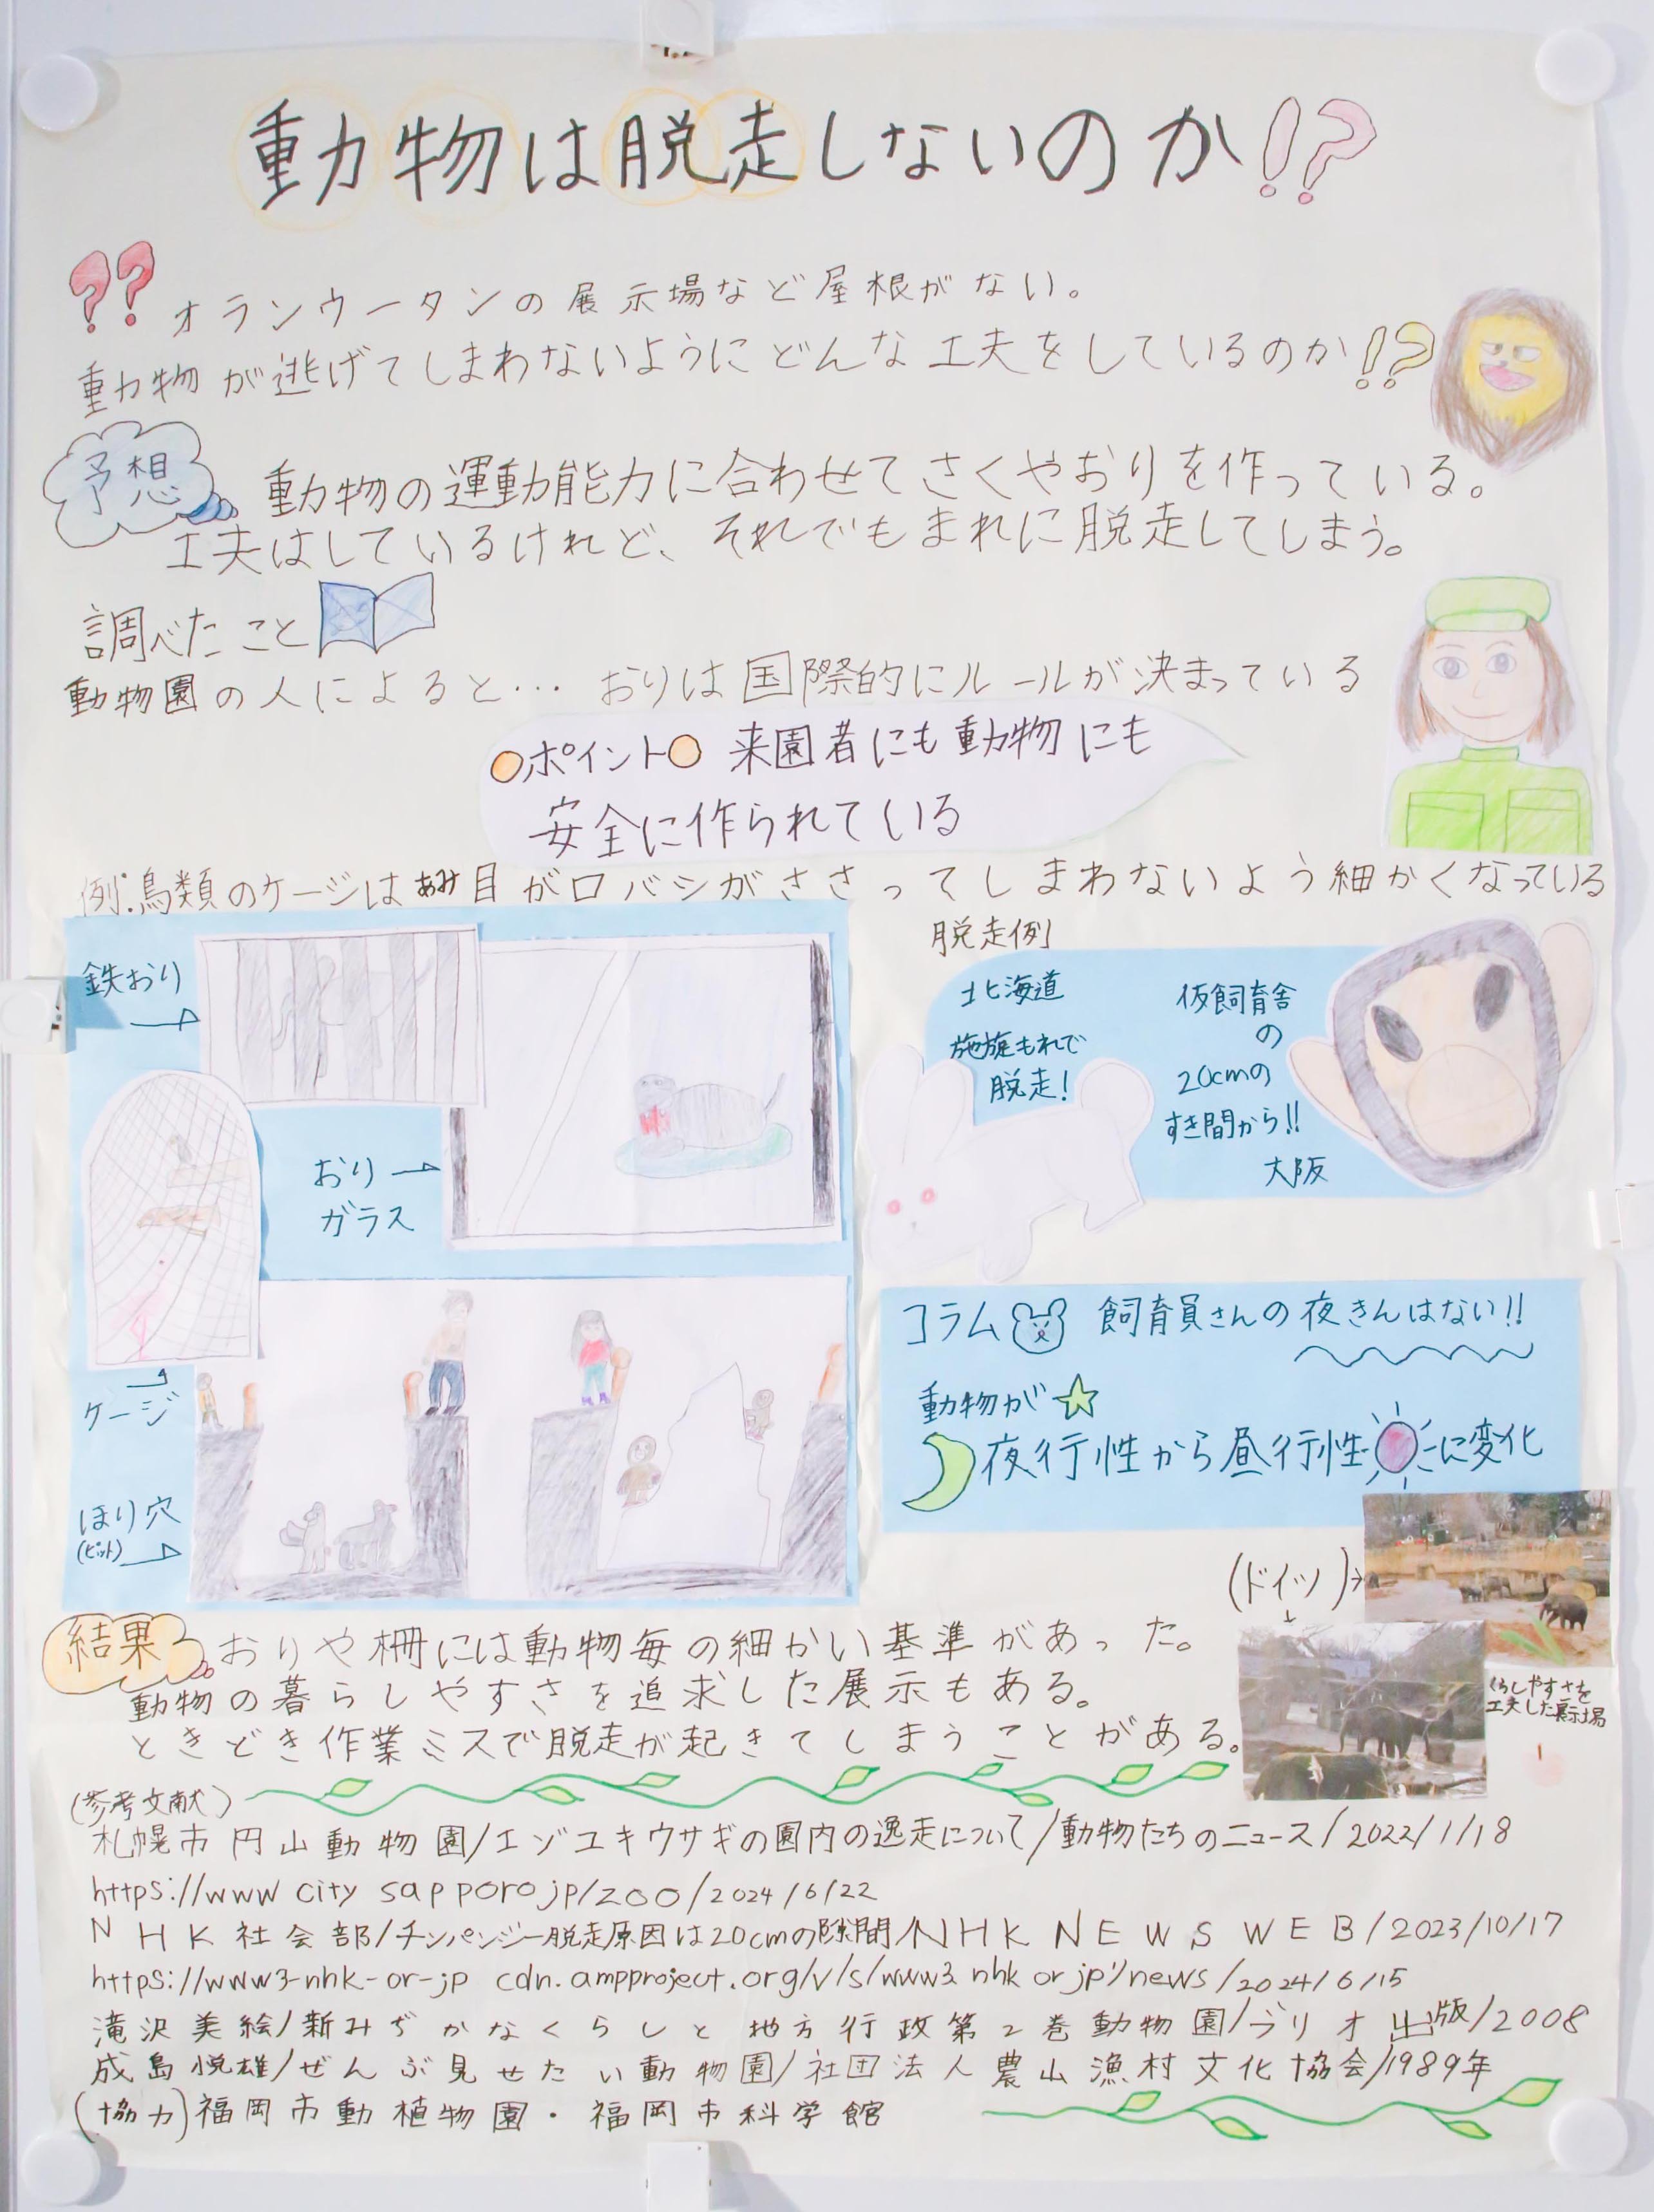 動物は脱走しないのか!?
?? オランウータンの展示場など屋根がない。
動物が逃げてしまわないようにどんな工夫をしているのか!?
予想 動物の運動能力に合わせてさくやおりを作っている。
工夫はしているけれど、それでもまれに脱走してしまう。
調べたこと
動物園の人によると… おりは国際的にルールが決まっている
ポイント 来園者にも動物にも
安全に作られている
例:鳥類のケージはあみ目が口バシがささってしまわないよう細かくなっている
鉄おり
おり
ガラス
ケージ
ほり穴
(ピット)
脱走例
北海道
施錠もれで
脱走!
仮飼育舎
の
20cmの
すき間から!!
大阪
コラム 飼育員さんの夜きんはない!!
動物が
夜行性から昼行性に変化
(ドイツ)
くらしやすさを
工夫した展示場
結果 おりや柵には動物毎の細かい基準があった。
動物の暮らしやすさを追求した展示もある。
ときどき作業ミスで脱走が起きてしまうことがある。
(参考文献)
札幌市円山動物園/エゾユキウサギの園内の逸走について/動物たちのニュース/2022/1/18
https://www city sapporo jp/zoo/2024/6/22
NHK社会部/チンパンジー脱走原因は20cmの隙間/NHK NEWS WEB/2023/10/17
https://www3-nhk-or-jp cdn.ampproject.org/v/s/www3 nhk or jp/news/2024/6/15
滝沢美絵/新みぢかなくらしと地方行政第2巻動物園/リブリオ出版/2008
成島悦雄/ぜんぶ見せたい動物園/社団法人農山漁村文化協会/1989年
(協力)福岡市動植物園・福岡市科学館